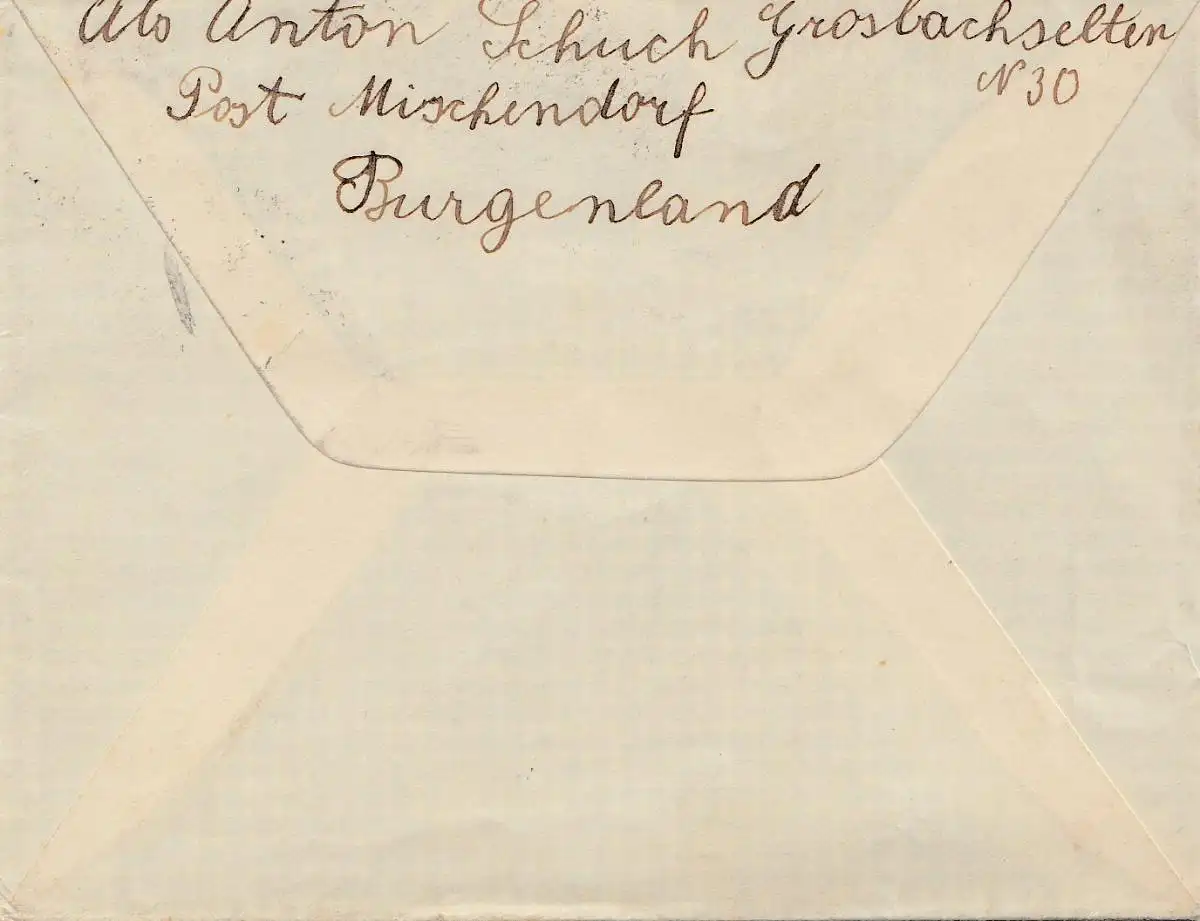 Abs Anton Schuch Grosbachselten
N 30
Post Mischendorf
Burgenland